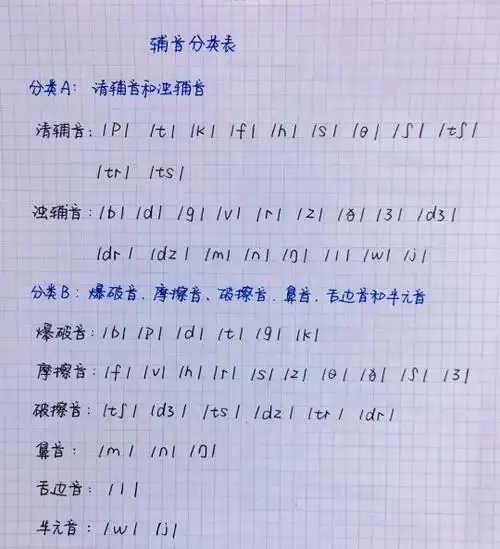 辅音分类表
分类A: 清辅音和浊辅音
清辅音: /p/ /t/ /k/ /f/ /h/ /s/ /θ/ /ʃ/ /tʃ/
/tr/ /ts/
浊辅音: /b/ /d/ /g/ /v/ /r/ /z/ /ð/ /ʒ/ /dʒ/
/dr/ /dz/ /m/ /n/ /ŋ/ /l/ /w/ /j/
分类B: 爆破音、摩擦音、破擦音、鼻音、舌边音和半元音
爆破音: /b/ /p/ /d/ /t/ /g/ /k/
摩擦音: /f/ /v/ /h/ /r/ /s/ /z/ /θ/ /ð/ /ʃ/ /ʒ/
破擦音: /tʃ/ /dʒ/ /ts/ /dz/ /tr/ /dr/
鼻音: /m/ /n/ /ŋ/
舌边音: /l/
半元音: /w/ /j/